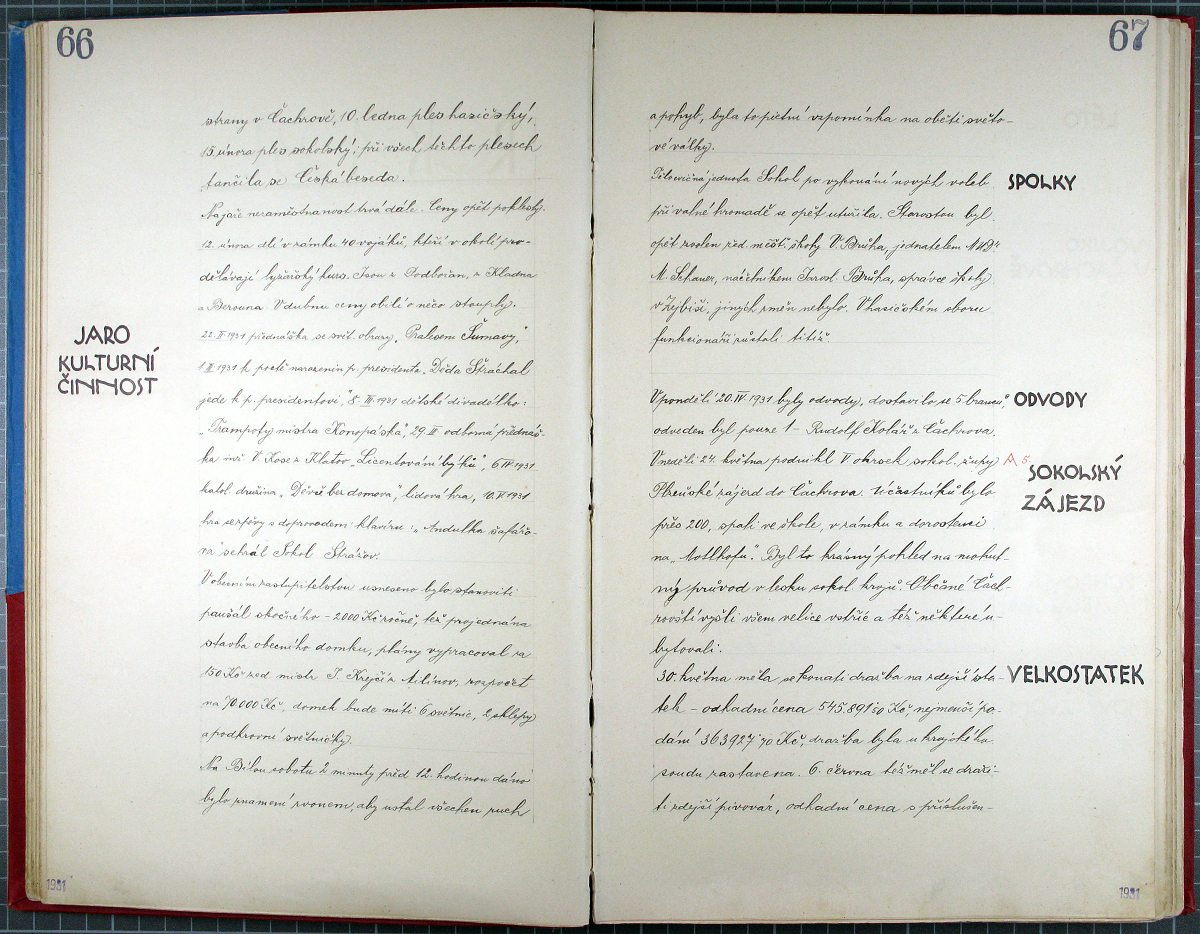 66
strany v Čachrově, 10. ledna ples hasičský,
15. února ples sokolský; při všech těchto plesech
tančila se Česká beseda.
Na jaře nezaměstnanost trvá dále. Ceny opět poklesly.
12. února dlí v zámku 40 vojáků, kteří v okolí pro-
dělávají lyžařský kurs. Jsou z Podbořan, z Kladna
a Berouna. V dubnu ceny obilí o něco stouply.
JARO
KULTURNÍ
ČINNOST
22. II 1931 přednáška se svět. obrazy „Pralesem Šumavy",
1 III 1931 k poctě narozenin p. presidenta „Děda Stráchal
jede k p. presidentovi", 8. III 1931 dětské divadélko:
„Trampoty mistra Konopáska", 29. III odborná přednáš-
ka inž. V. Kose z Klatov „Licentování býků", 6 IV 1931
katol. družina „Děvče bez domova", lidová hra, 10. V 1931
hra se zpěvy s doprovodem klavíru: „Andulka šafářo-
na" sehrál Sokol Strážov.
V obecním zastupitelstvu usneseno bylo stanoviti
paušál skočného - 2000 Kč ročně, též projednána
stavba obecního domku, plány vypracoval za
150 Kč zed. mistr J. Krejčí z Milínov, rozpočet
na 70.000 Kč, domek bude míti 6 světnic, 2 sklepy
a podkrovní světničky.
Na Bílou sobotu 2 minuty před 12. hodinou dáno
bylo znamení zvonem, aby ustal všechen ruch
1931
67
a pohyb, byla to pietní vzpomínka na oběti světo-
vé války.
SPOLKY
Tělocvičná jednota Sokol po vykonání nových voleb
při valné hromadě se opět utužila. Starostou byl
opět zvolen řed. měšť. školy V. Brůha, jednatelem
M. Schauer, náčelníkem Jarosl. Brůha, správce školy
v Zejbiši, jiných změn nebylo. V hasičském sboru
funkcionáři zůstali titíž.
ODVODY
V pondělí 20. IV 1931 byly odvody, dostavilo se 5 branců,
odveden byl pouze 1 - Rudolf Kolář z Čachrova.
V neděli 24. května podnikl V okrsek sokol. župy A 5.
SOKOLSKÝ
ZÁJEZD
Plzeňské zájezd do Čachrova. Účastníků bylo
přes 200, spali ve škole, v zámku a dorostenci
na „Motlhofu". Byl to krásný pohled na mohut-
ný průvod v lesku sokol. krojů. Občané Čach-
rovští vyšli všem velice vstříc a též některé u-
bytovali.
VELKOSTATEK
30. května měla se konati dražba na zdejší sta-
tek - odhadní cena 545.891.50 Kč, nejmenší po-
dání 363927.70 Kč, dražba byla u krajského
soudu zastavena. 6. června též měl se draži-
ti zdejší pivovár, odhadní cena s příslušen-
1931